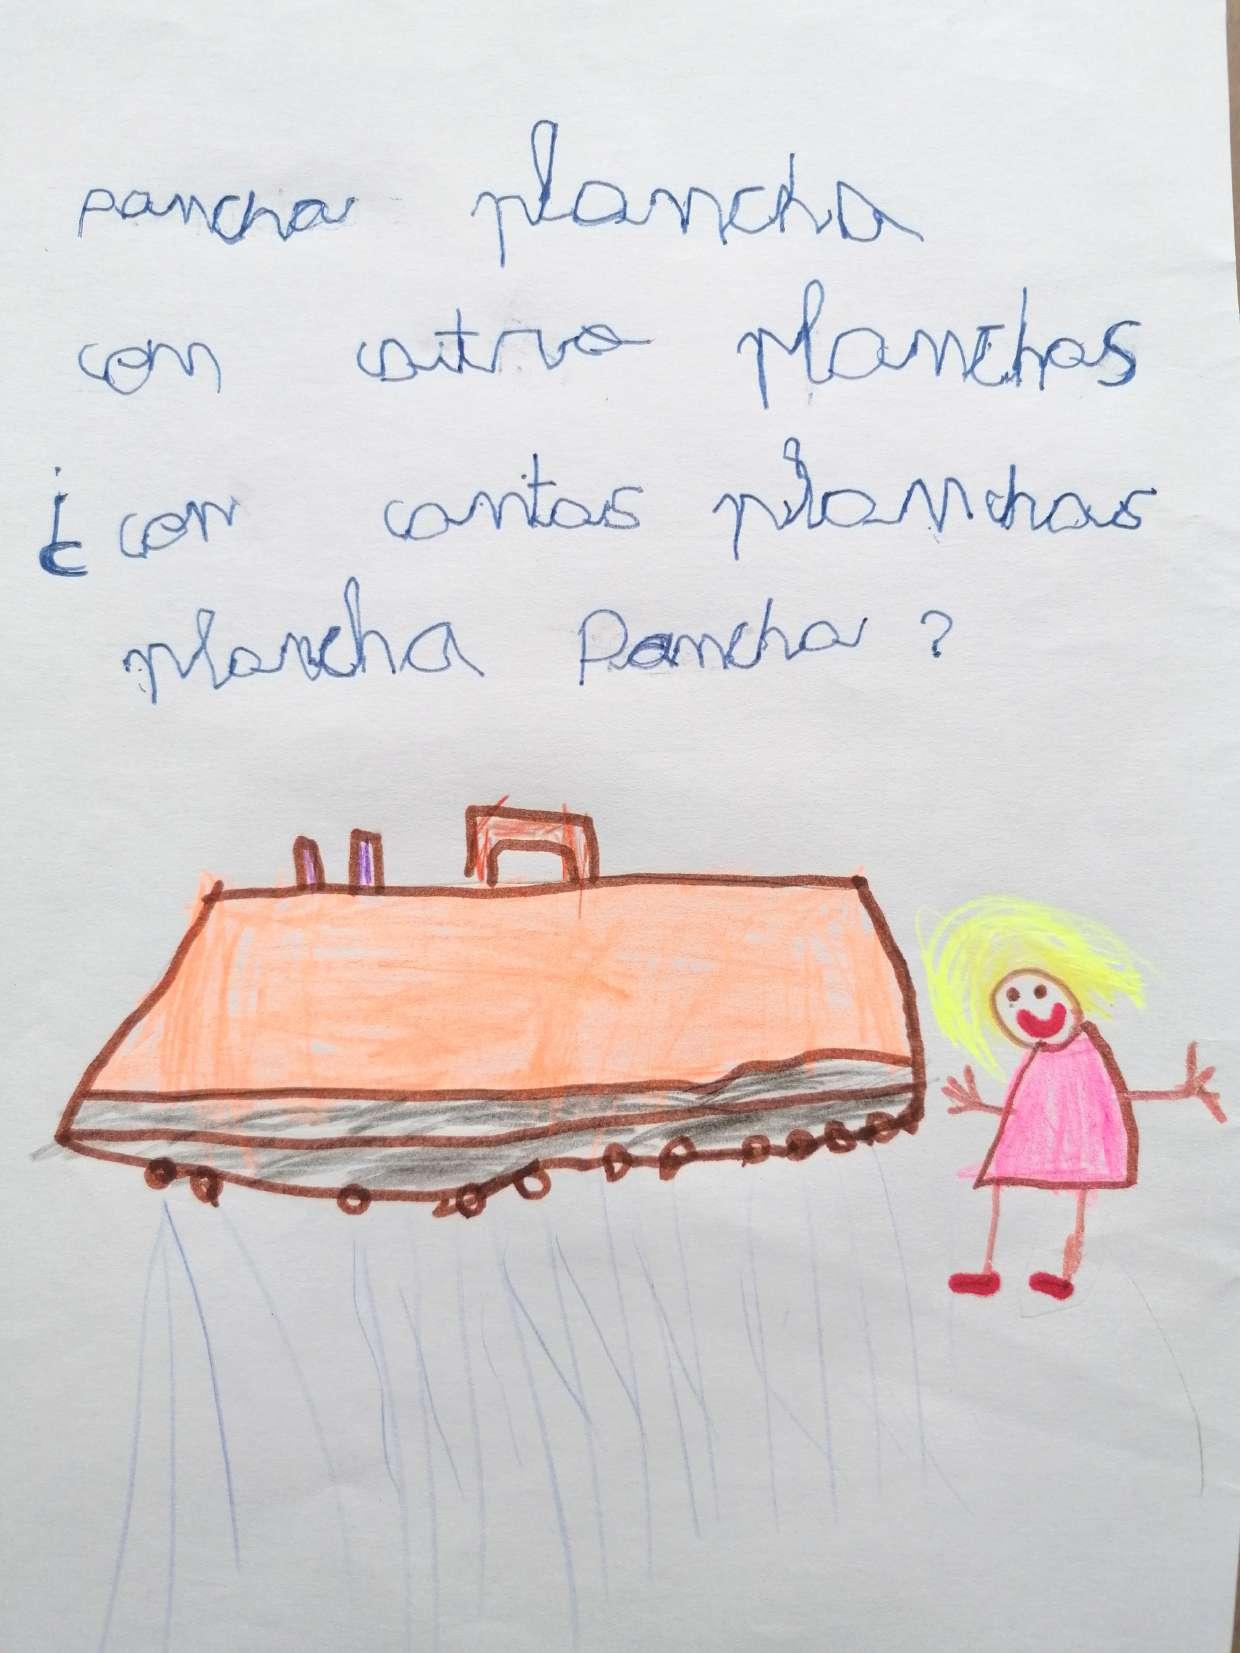 pancha plancha
con cutro planchas
¿con cantas planchas
plancha Pancha?